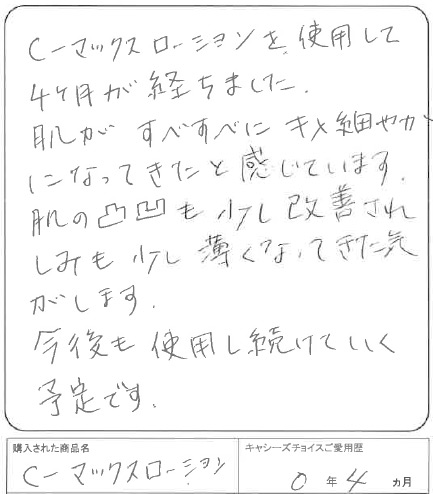 C－マックスローションを使用して
4ケ月が経ちました.
肌がすべすべにキメ細やか
になってきたと感じています.
肌の凸凹も少し改善され
しみも少し薄くなってきた気
がします.
今後も使用し続けていく
予定です.
購入された商品名
C－マックスローション
キャシーズチョイスご愛用歴
0年4ヵ月